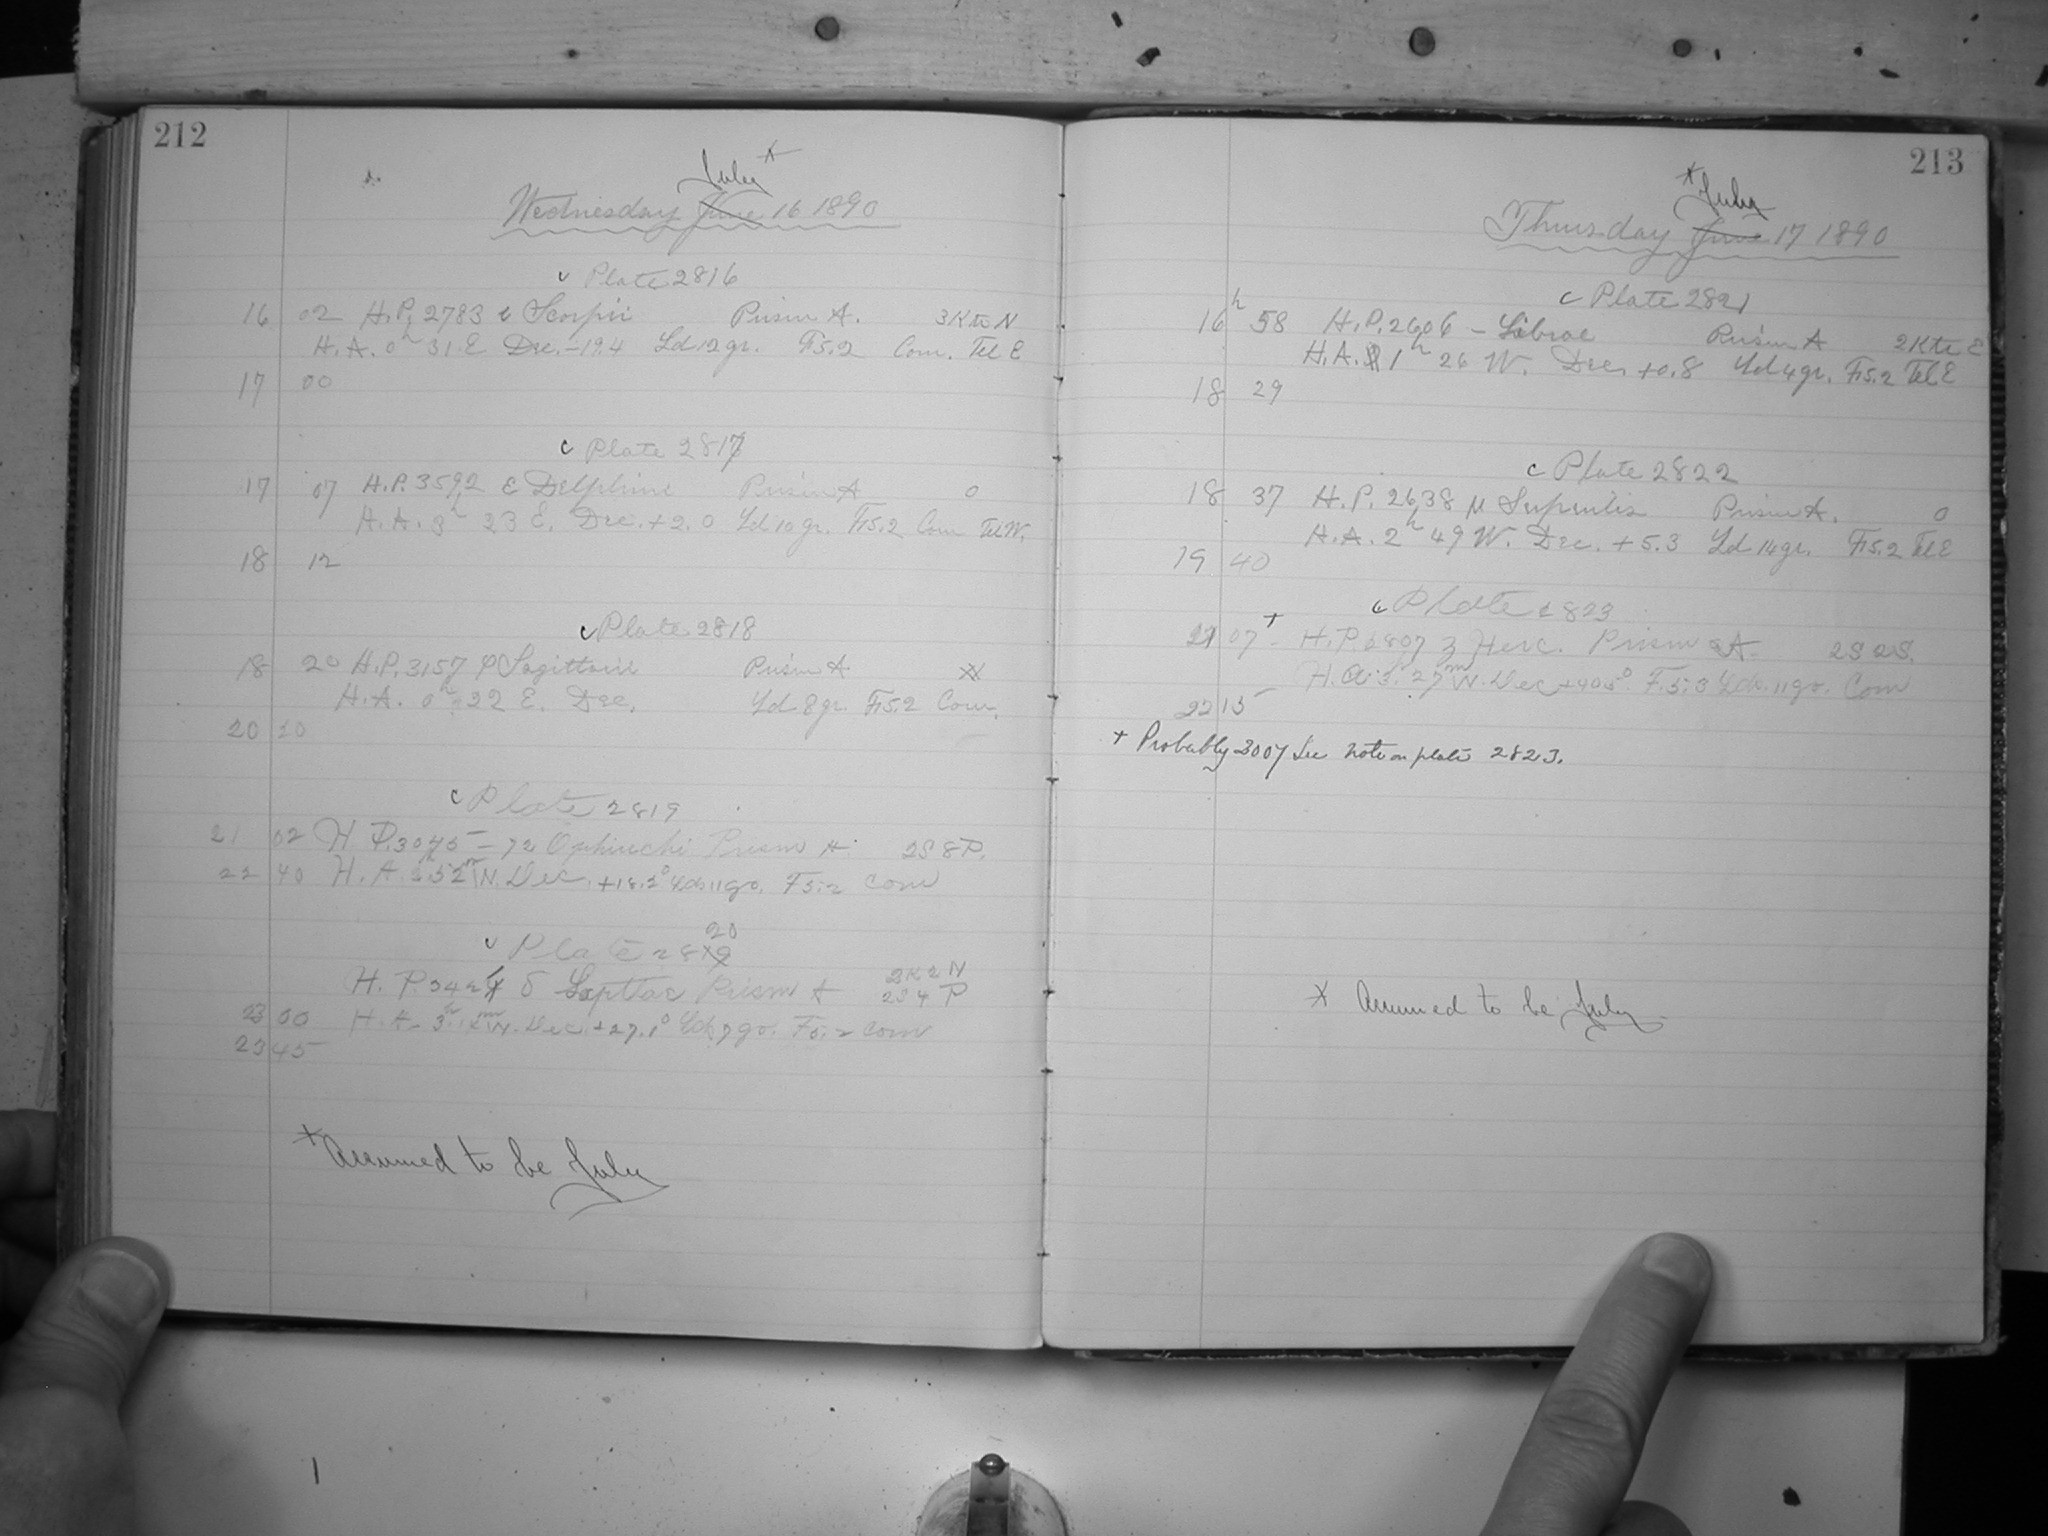 212
July *
Wednesday June 16 1890
c Plate 2816
16 02 H.P. 2783 Scorpii Prism A. 3K to N
H.A. 0h 31 E Dec. -19.4 Ld 12 gr. F 5.2 Com. Tel E
17 00
c Plate 2817
17 07 H.P. 3592 ε Delphini Prism A 0
H.A. 3h 23 E. Dec. +2.0 Ld 10 gr. F 5.2 Com Tel W.
18 12
c Plate 2818
18 20 H.P. 3157 φ Sagittarii Prism A
H.A. 0h 22 E. Dec. Ld 8 gr. F 5.2 Com.
20 20
c Plate 2819
21 02 H P. 3075 - 72 Ophiuchi Prism A. 2S 8P.
22 40 H.A. 52m W. Dec. +18.2° Ld. 11 gr. F 5.2 Com
20
c Plate 2819
H. P. 342 δ Prism A 2K 2N
2S 4 P
23 00 H.A. 3h W. Dec. +27.1° Ld. 7 gr. F 5.2 Com
23 45
* Assumed to be July
213
* July
Thursday June 17 1890
c Plate 2821
16h 58 H.P. 2606 - Librae Prism A 2K to E
H.A. 1h 26 W. Dec. +0.8 Ld 4 gr. F 5.2 Tel E
18 29
c Plate 2822
18 37 H.P. 2638 μ Serpentis Prism A. 0
H.A. 2h 49 W. Dec. +5.3 Ld 14 gr. F 5.2 Tel E
19 40
c Plate 2823
21 07+ - H.P. 2807 Herc. Prism A. 2S 2S.
H.A. 3. 27m W. Dec +40.5° F. 5.3 Ld. 11 gr. Com
22 15
+ Probably 3007 See note on plate 2823.
* Assumed to be July